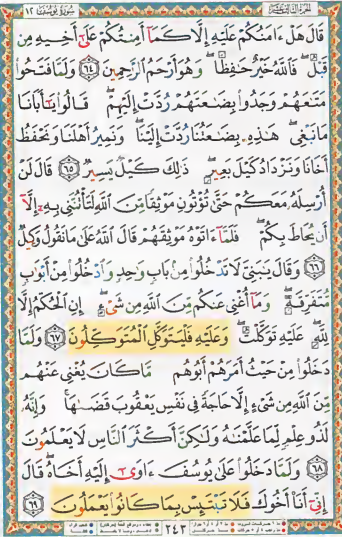 سورة يوسف ١٢
قَالَ هَلْ ءَامَنُكُمْ عَلَيْهِ إِلَّا كَمَآ أَمِنتُكُمْ عَلَىٰٓ أَخِيهِ مِن
قَبْلُ فَٱللَّهُ خَيْرٌ حَٰفِظًا وَهُوَ أَرْحَمُ ٱلرَّٰحِمِينَ ٦٤ وَلَمَّا فَتَحُوا۟
مَتَٰعَهُمْ وَجَدُوا۟ بِضَٰعَتَهُمْ رُدَّتْ إِلَيْهِمْ قَالُوا۟ يَٰٓأَبَانَا
مَا نَبْغِى هَٰذِهِۦ بِضَٰعَتُنَا رُدَّتْ إِلَيْنَا وَنَمِيرُ أَهْلَنَا وَنَحْفَظُ
أَخَانَا وَنَزْدَادُ كَيْلَ بَعِيرٍ ذَٰلِكَ كَيْلٌ يَسِيرٌ ٦٥ قَالَ لَنْ
أُرْسِلَهُۥ مَعَكُمْ حَتَّىٰ تُؤْتُونِ مَوْثِقًا مِّنَ ٱللَّهِ لَتَأْتُنَّنِى بِهِۦٓ إِلَّآ
أَن يُحَاطَ بِكُمْ فَلَمَّآ ءَاتَوْهُ مَوْثِقَهُمْ قَالَ ٱللَّهُ عَلَىٰ مَا نَقُولُ وَكِيلٌ
٦٦ وَقَالَ يَٰبَنِىَّ لَا تَدْخُلُوا۟ مِنۢ بَابٍ وَٰحِدٍ وَٱدْخُلُوا۟ مِنْ أَبْوَٰبٍ
مُّتَفَرِّقَةٍ وَمَآ أُغْنِى عَنكُم مِّنَ ٱللَّهِ مِن شَىْءٍ إِنِ ٱلْحُكْمُ إِلَّا
لِلَّهِ عَلَيْهِ تَوَكَّلْتُ وَعَلَيْهِ فَلْيَتَوَكَّلِ ٱلْمُتَوَكِّلُونَ ٦٧ وَلَمَّا
دَخَلُوا۟ مِنْ حَيْثُ أَمَرَهُمْ أَبُوهُم مَّا كَانَ يُغْنِى عَنْهُم
مِّنَ ٱللَّهِ مِن شَىْءٍ إِلَّا حَاجَةً فِى نَفْسِ يَعْقُوبَ قَضَىٰهَا وَإِنَّهُۥ
لَذُو عِلْمٍ لِّمَا عَلَّمْنَٰهُ وَلَٰكِنَّ أَكْثَرَ ٱلنَّاسِ لَا يَعْلَمُونَ
٦٨ وَلَمَّا دَخَلُوا۟ عَلَىٰ يُوسُفَ ءَاوَىٰٓ إِلَيْهِ أَخَاهُ قَالَ
إِنِّىٓ أَنَا۠ أَخُوكَ فَلَا تَبْتَئِسْ بِمَا كَانُوا۟ يَعْمَلُونَ ٦٩
٢٤٣